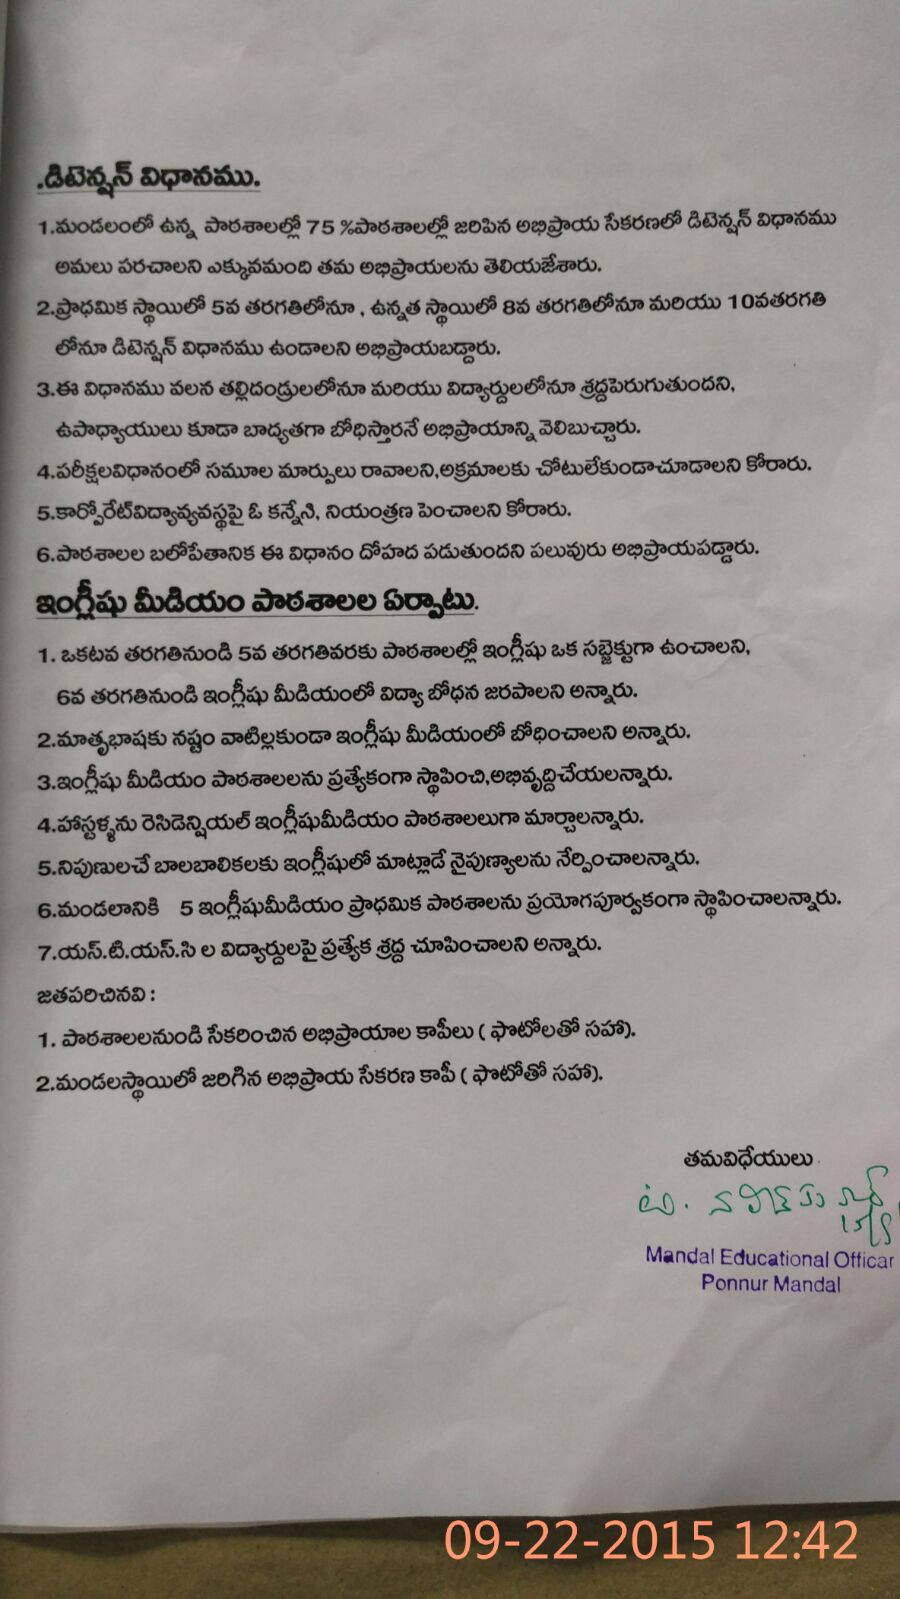 .డిటెన్షన్ విధానము.
1.మండలంలో ఉన్న పాఠశాలల్లో 75 %పాఠశాలల్లో జరిపిన అభిప్రాయ సేకరణలో డిటెన్షన్ విధానము
అమలు పరచాలని ఎక్కువమంది తమ అభిప్రాయలను తెలియజేశారు.
2.ప్రాధమిక స్థాయిలో 5వ తరగతిలోనూ , ఉన్నత స్థాయిలో 8వ తరగతిలోనూ మరియు 10వతరగతి
లోనూ డిటెన్షన్ విధానము ఉండాలని అభిప్రాయబడ్డారు.
3.ఈ విధానము వలన తల్లిదండ్రులలోనూ మరియు విద్యార్దులలోనూ శ్రద్దపెరుగుతుందని,
ఉపాధ్యాయులు కూడా బాద్యతగా బోధిస్తారనే అభిప్రాయాన్ని వెలిబుచ్చారు.
4.పరీక్షలవిధానంలో సమూల మార్పులు రావాలని,అక్రమాలకు చోటులేకుండాచూడాలని కోరారు.
5.కార్పోరేట్‌విద్యావ్యవస్థపై ఓ కన్నేసి, నియంత్రణ పెంచాలని కోరారు.
6.పాఠశాలల బలోపేతానిక ఈ విధానం దోహద పడుతుందని పలువురు అభిప్రాయపడ్డారు.
ఇంగ్లీషు మీడియం పాఠశాలల ఏర్పాటు.
1. ఒకటవ తరగతినుండి 5వ తరగతివరకు పాఠశాలల్లో ఇంగ్లీషు ఒక సబ్జెక్టుగా ఉంచాలని,
6వ తరగతినుండి ఇంగ్లీషు మీడియంలో విద్యా బోధన జరపాలని అన్నారు.
2.మాతృభాషకు నష్టం వాటిల్లకుండా ఇంగ్లీషు మీడియంలో బోధించాలని అన్నారు.
3.ఇంగ్లీషు మీడియం పాఠశాలలను ప్రత్యేకంగా స్థాపించి,అభివృద్దిచేయలన్నారు.
4.హాస్టళ్ళను రెసిడెన్షియల్ ఇంగ్లీషుమీడియం పాఠశాలలుగా మార్చాలన్నారు.
5.నిపుణులచే బాలబాలికలకు ఇంగ్లీషులో మాట్లాడే నైపుణ్యాలను నేర్పించాలన్నారు.
6.మండలానికి 5 ఇంగ్లీషుమీడియం ప్రాధమిక పాఠశాలను ప్రయోగపూర్వకంగా స్థాపించాలన్నారు.
7.యస్.టి.యస్.సి ల విద్యార్దులపై ప్రత్యేక శ్రద్ద చూపించాలని అన్నారు.
జతపరిచినవి :
1. పాఠశాలలనుండి సేకరించిన అభిప్రాయాల కాపీలు ( ఫొటోలతో సహా).
2.మండలస్థాయిలో జరిగిన అభిప్రాయ సేకరణ కాపీ ( ఫొటోతో సహా).
తమవిధేయులు
Mandal Educational Officar
Ponnur Mandal
09-22-2015 12:42